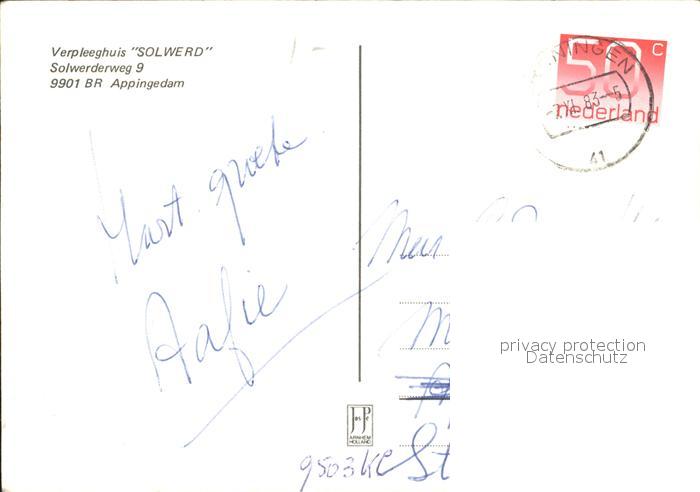 Verpleeghuis "SOLWERD"
Solwerderweg 9
9901 BR Appingedam
Hart. groete
Aafie
NINGEN
XI. 83-5
41
50 C
nederland
privacy protection
Datenschutz
JosPe
ARNHEM
HOLLAND
9503KC St